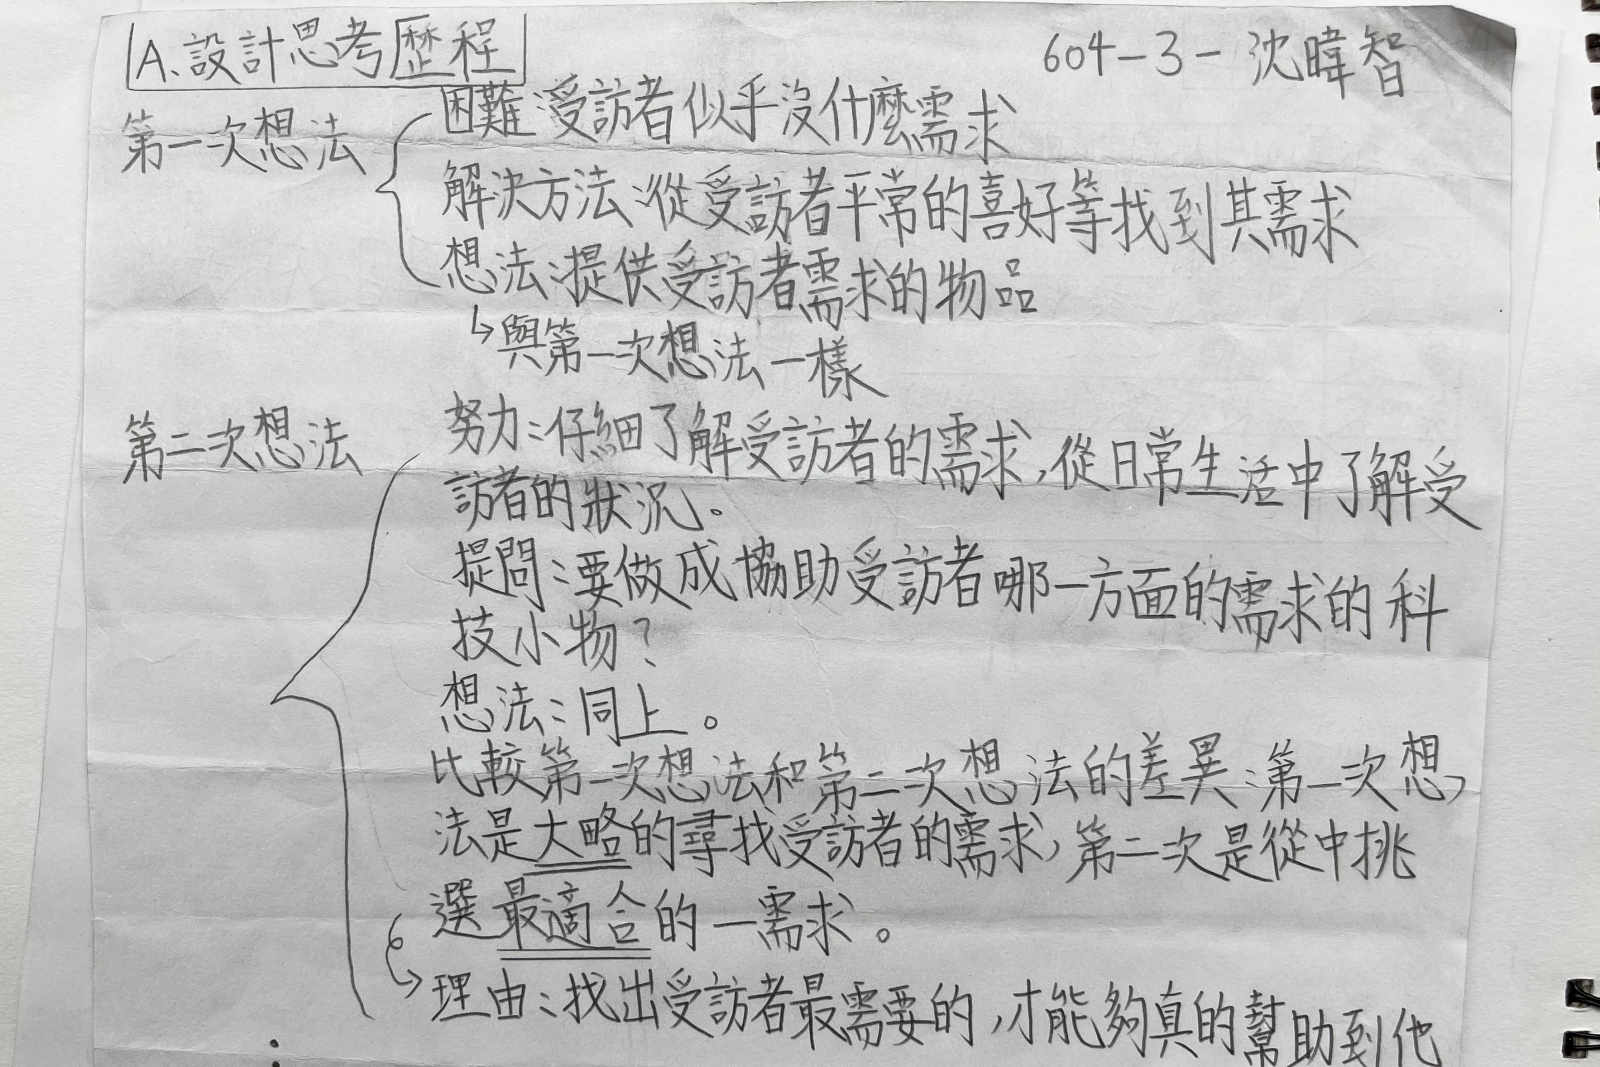 A.設計思考歷程
604-3-沈暐智
第一次想法
困難:受訪者似乎沒什麼需求
解決方法:從受訪者平常的喜好等找到其需求
想法:提供受訪者需求的物品
↳與第一次想法一樣
第二次想法
努力:仔細了解受訪者的需求,從日常生活中了解受
訪者的狀況。
提問:要做成協助受訪者哪一方面的需求的科
技小物?
想法:同上。
比較第一次想法和第二次想法的差異:第一次想
法是大略的尋找受訪者的需求,第二次是從中挑
選最適合的一需求。
理由:找出受訪者最需要的,才能夠真的幫助到他